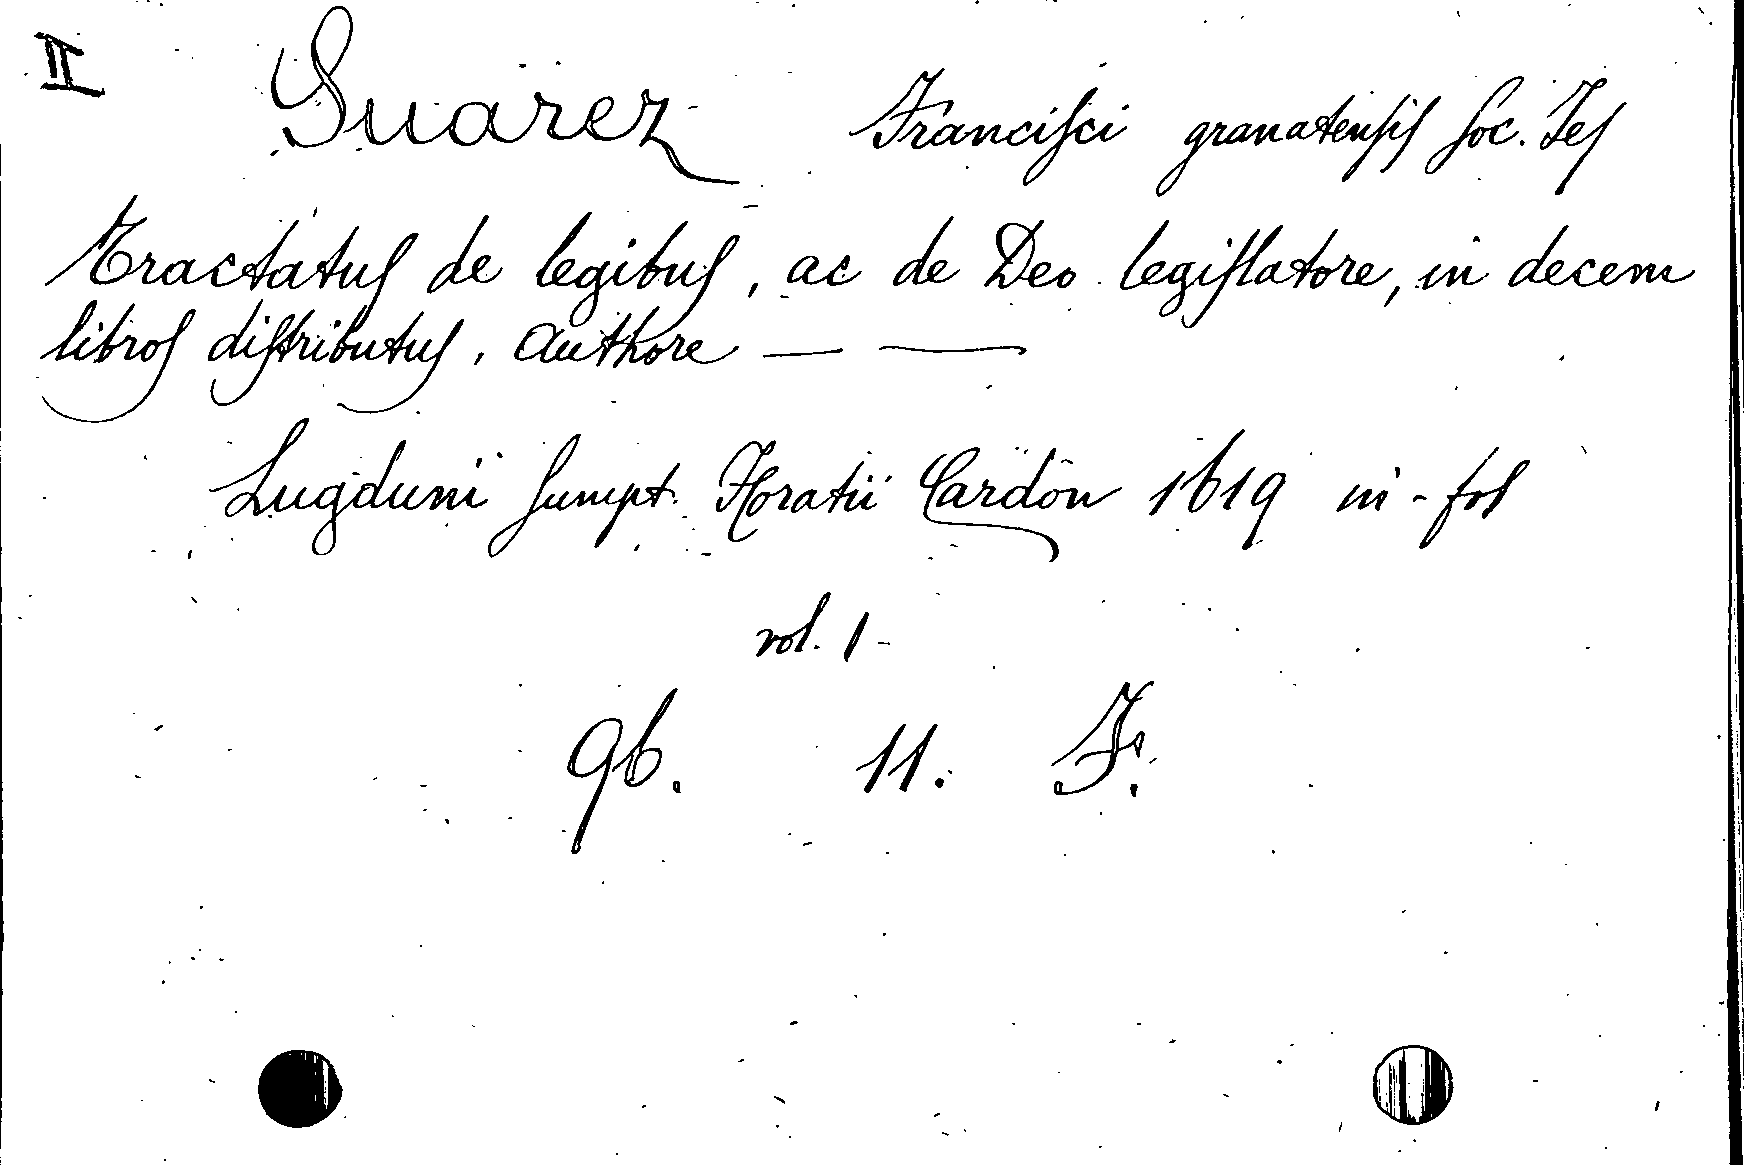 II
Suarez Francisci granatensis Soc. Jes
Tractatus de legibus, ac de Deo legislatore, in decem
libros distributus. Authore — —
Lugduni sumpt. Horatii Cardon 1619 in-fol
vol. 1-
96. 11. F.